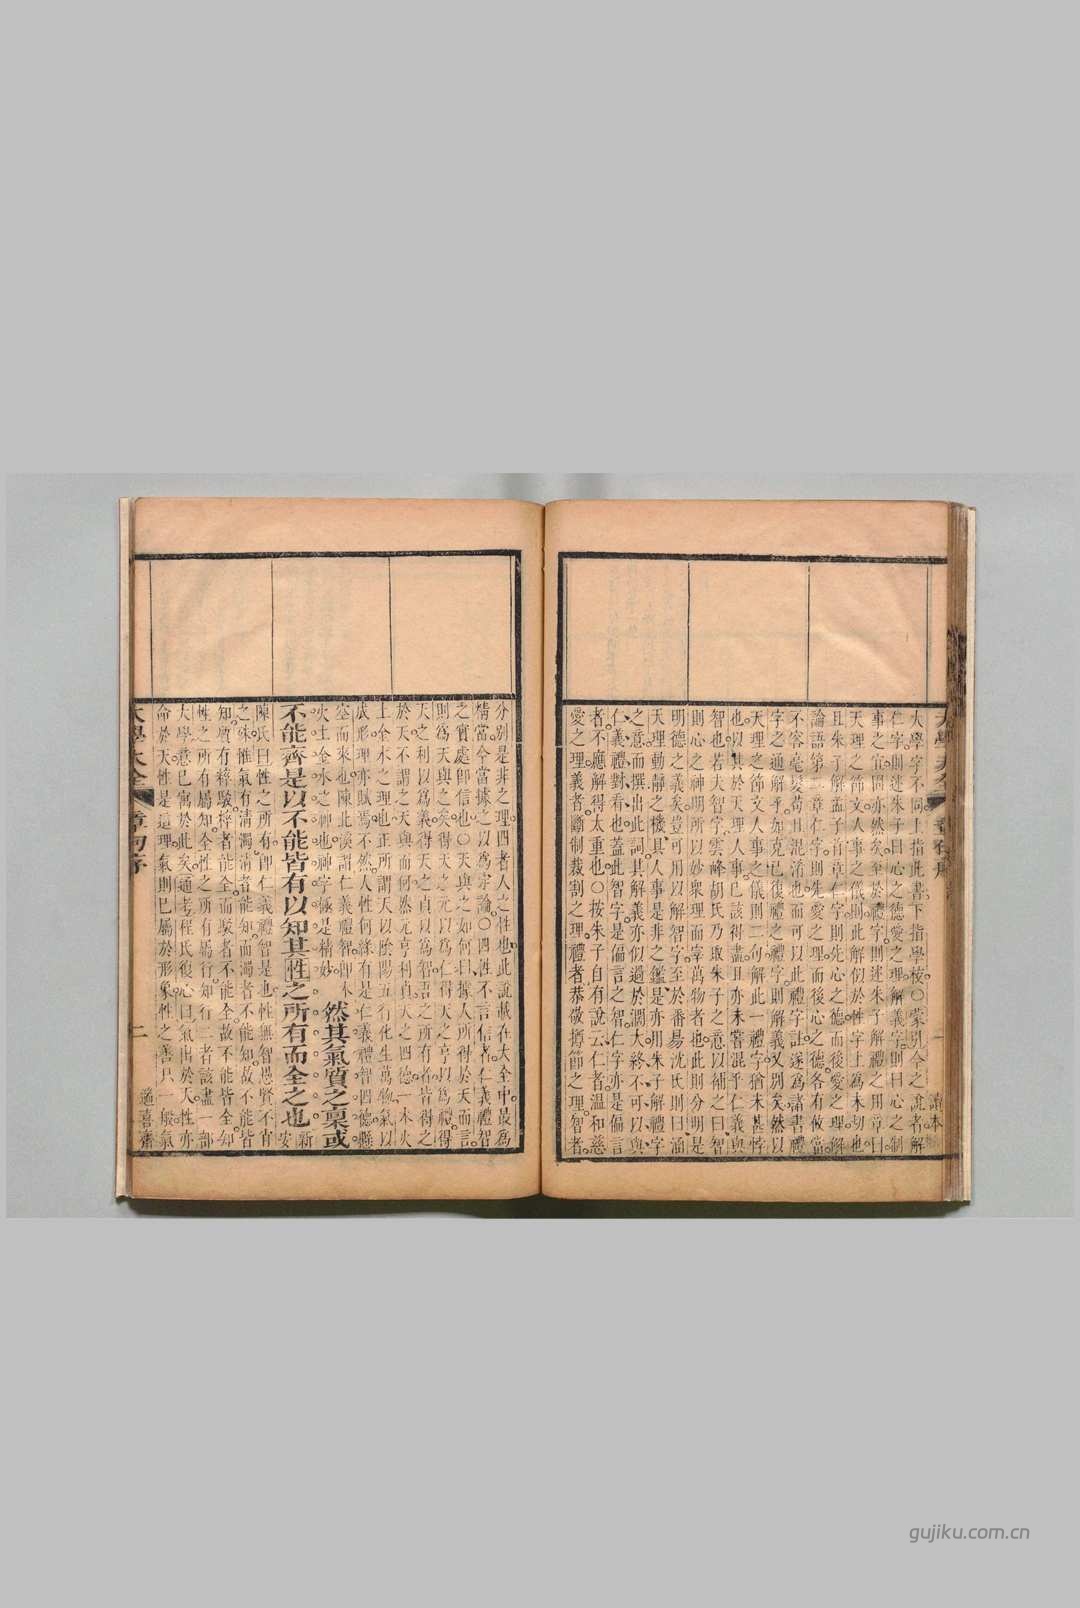 大學字不同上指此書下指學校○蒙引今之說者解
仁字則述朱子曰心之德愛之理解義字則曰心之制
事之宜固亦然矣至於禮字則述朱子解禮之用章曰
天理之節文人事之儀則此解似於性字上為未切也
且朱子解孟子首章仁字則先心之德而後愛之理解
論語第二章仁字則先愛之理而後心之德各有攸當
不容毫髮苟且混淆也而可以此禮字註遂為諸書禮
字之通解乎如克已復禮之禮字則解義又別矣然以
天理之節文人事之儀則二句解此一禮字猶未甚悖
也以其於天理人事已該得盡且亦未嘗混乎仁義與
智也若夫智字雲峰胡氏乃取朱子之意以補之曰智
則心之神明所以妙衆理而宰萬物者也此則分明是
明德之義矣豈可用以解智字至於番昜沈氏則曰涵
天理動靜之機具人事是非之鑑是亦用朱子解禮字
之意而撰出此詞其解義亦似過於濶大終不可以與
仁義禮對看也蓋此智字是偏言之智仁字亦是偏言
者不應解得太重也○按朱子自有說云仁者温和慈
愛之理義者斷制裁割之理禮者恭敬撙節之理智者
分別是非之理四者人之性也此說載在大全中最為
精當今當據之以為定論○四性不言信者仁義禮智
之實處即信也○天與之如何曰據人所得於天而言
則為天與之矣得天之元以為仁得天之亨以為禮得
天之利以為義得天之貞以為智吾之所有者皆得之
於天不謂之天與而何然元亨利貞天之四德一木火
土金水之理也正所謂天以陰陽五行化生萬物氣以
成形理亦賦焉不然人性何緣有是仁義禮智四德懸
空而來也陳北溪謂仁義禮智即木
火土金水之神也神字極是精妙
然其氣質之稟或
不能齊是以不能皆有以知其性之所有而全之也
新安
陳氏曰性之所有即仁義禮智是也性無智愚賢不肖
之殊惟氣有清濁清者能知而濁者不能知故不能皆
知質有粹駁粹者能全而駁者不能全故不能皆全知
性之所有屬知全性之所有屬行知行二者該盡一部
大學意已寓於此矣通考程氏復心曰氣出於天性亦
命於天性是這理氣則已屬於形象性之善只一般氣
大學大全
章句序
二
適喜齋